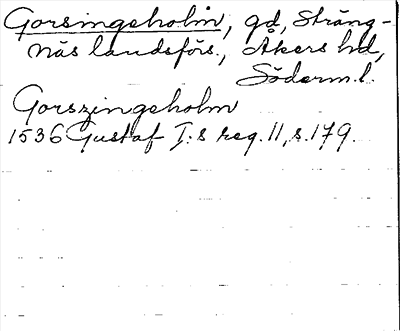 Gorsingeholm, gd, Sträng-
näs landsförs., Åkers hd,
Söderm. l.
Gorszingeholm
1536 Gustaf I:s reg. 11, s. 179.